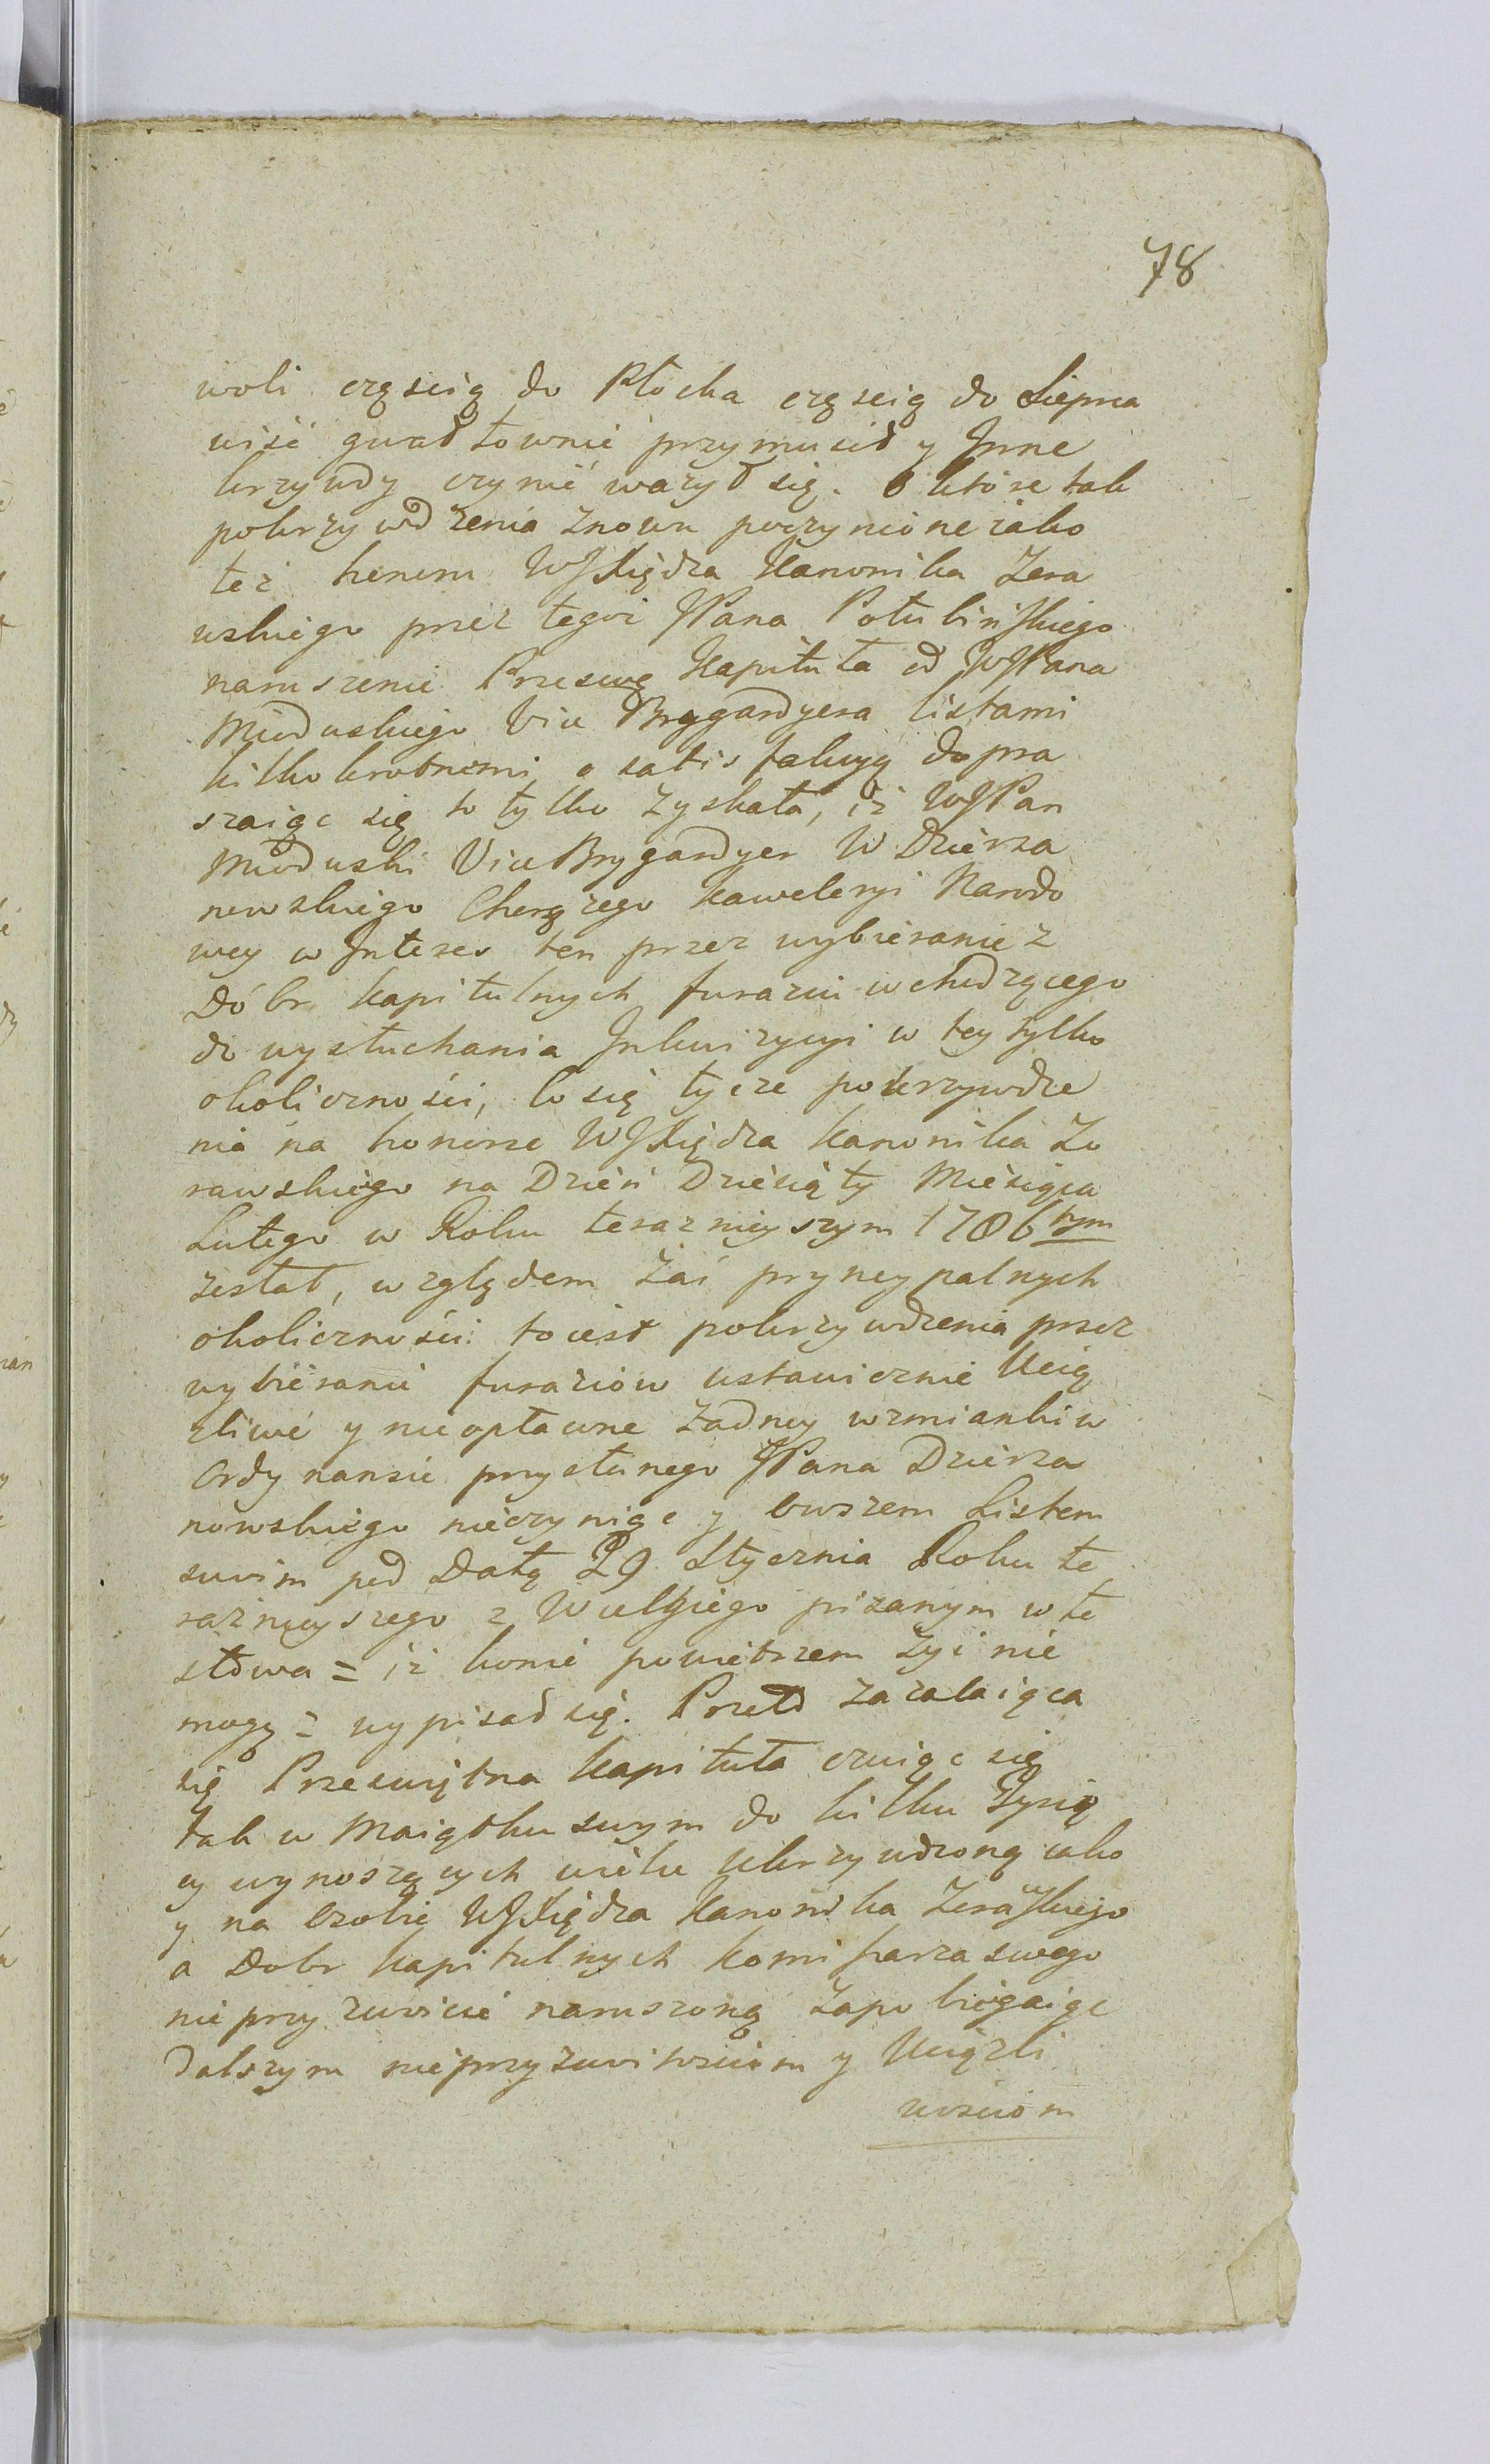 78
woli częścią do Płocka częścią do Sierpca
wiść gwałtownie przymusił y Inne
krzywdy czynić ważył się. O które tak
pokrzywdzenia znowu poczynione iako
też honoru WJXiędza Kanonika Zera
wskiego przez tegoż JPana Potubińskiego
naruszenie Przeswę Kapituła od WJPana
Mioduskiego Vice Brygardyera listami
kilkokrotnemi o satisfakcyą dopra
szaiąc się to tylko zyskała, iż WJPan
Mioduski Vice Brygardyer W Dzierża
nowskiego Chorążego Kawaleryi Narodo
wey w Interes ten przez wybieranie z
Dóbr Kapitulnych furażu wchodzącego
do wysłuchania Inkwizycyi w tey tylko
okoliczności, co się tycze pokrzywdze
nia na honorze WJXiędza Kanonika Że
rawskiego na Dzień Dziesiąty Miesiąca
Lutego w Roku teraznieyszym 1786tym
zesłał, względem zaś pryncypalnych
okoliczności to iest pokrzywdzenia przez
wybieranie furażiów ustawicznie Ucią
żliwe y nieopłacone żadney wzmianki w
Ordynansie przysłanego JPana Dzierża
nowskiego nieczyniąc y owszem Listem
swoim pod Datą 29 Stycznia Roku te
raźnieyszego z Wielgiego pisanym w te
słowa = iż konie powietrzem żyć nie
mogą = wypisał się. Przeto żalaiąca
się Przeswiętna Kapituła czuiąc się
tak w Maiątku swym do kilku Tysię
cy wynoszących wielu Ukrzywdzoną iako
y na Osobie WJXiędza Kanonika Zerawskiego
a Dobr Kapitulnych Komissarza swego
nie przyzwoicie naruszoną zapobiegaiąc
dalszym nieprzyzwoitościom y Uciążli
wościom